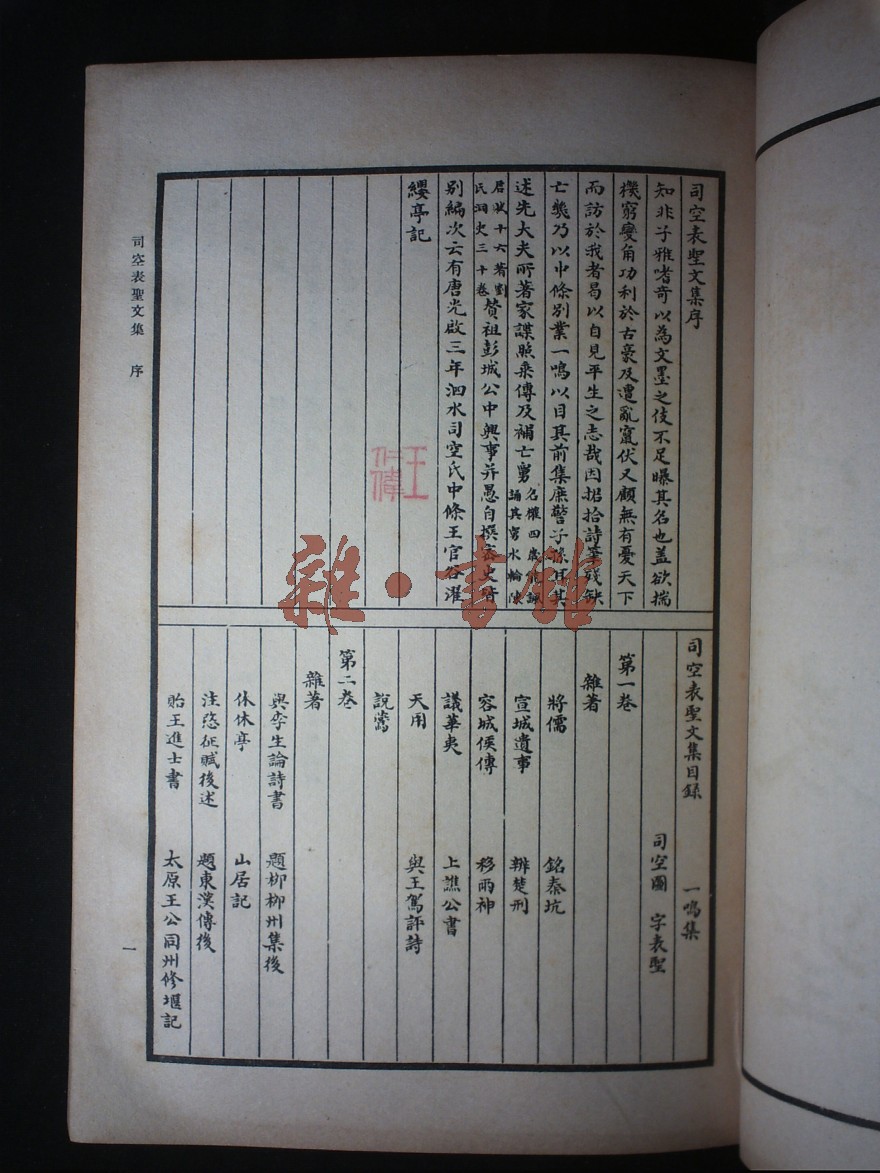 司空表聖文集序
知非子雅嗜奇以為文墨之伎不足曝其名也盖欲揣
機窮變角功利於古豪及遭亂竄伏又顧無有憂天下
而訪於我者曷以自見平生之志哉因捃拾詩筆殘缺
亡幾乃以中條別業一鳴以目其前集庶警子孫耳其
述先大夫所著家諜照乘傳及補亡舅名權四歲能諷誦其舅水輪陳
君狀十六著劉氏洞史三十卷贊祖彭城公中興事并愚自撰密史皆
別編次云有唐光啟三年泗水司空氏中條王官谷濯
纓亭記
司空表聖文集目録 一鳴集
司空圖 字表聖
第一卷
雜著
將儒 銘秦坑
宣城遺事 辨楚刑
容城侯傳 移雨神
議華夷 上譙公書
天用 與王駕評詩
說鶯
第二卷
雜著
與李生論詩書 題柳柳州集後
休休亭 山居記
注愍征賦後述 題東漢傳後
貽王進士書 太原王公同州修堰記
司空表聖文集 序
一
王仁偉
雜·書館